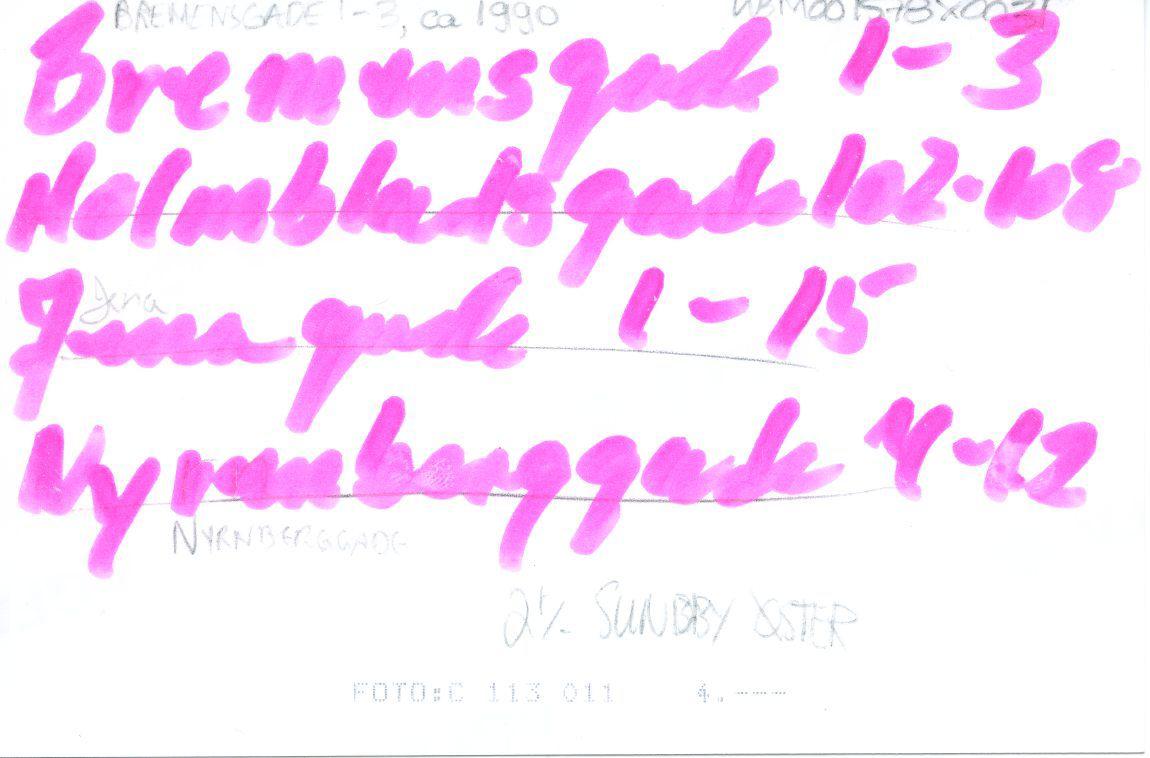 BREMENSGADE 1-3, ca 1990
Bremensgade 1-3
Holmbladsgade 102-108
Jena
Jenagade 1-15
Nyrnberggade 4-12
NYRNBERGGADE
SUNDBY ØSTER
FOTO:C 113 011 4.---